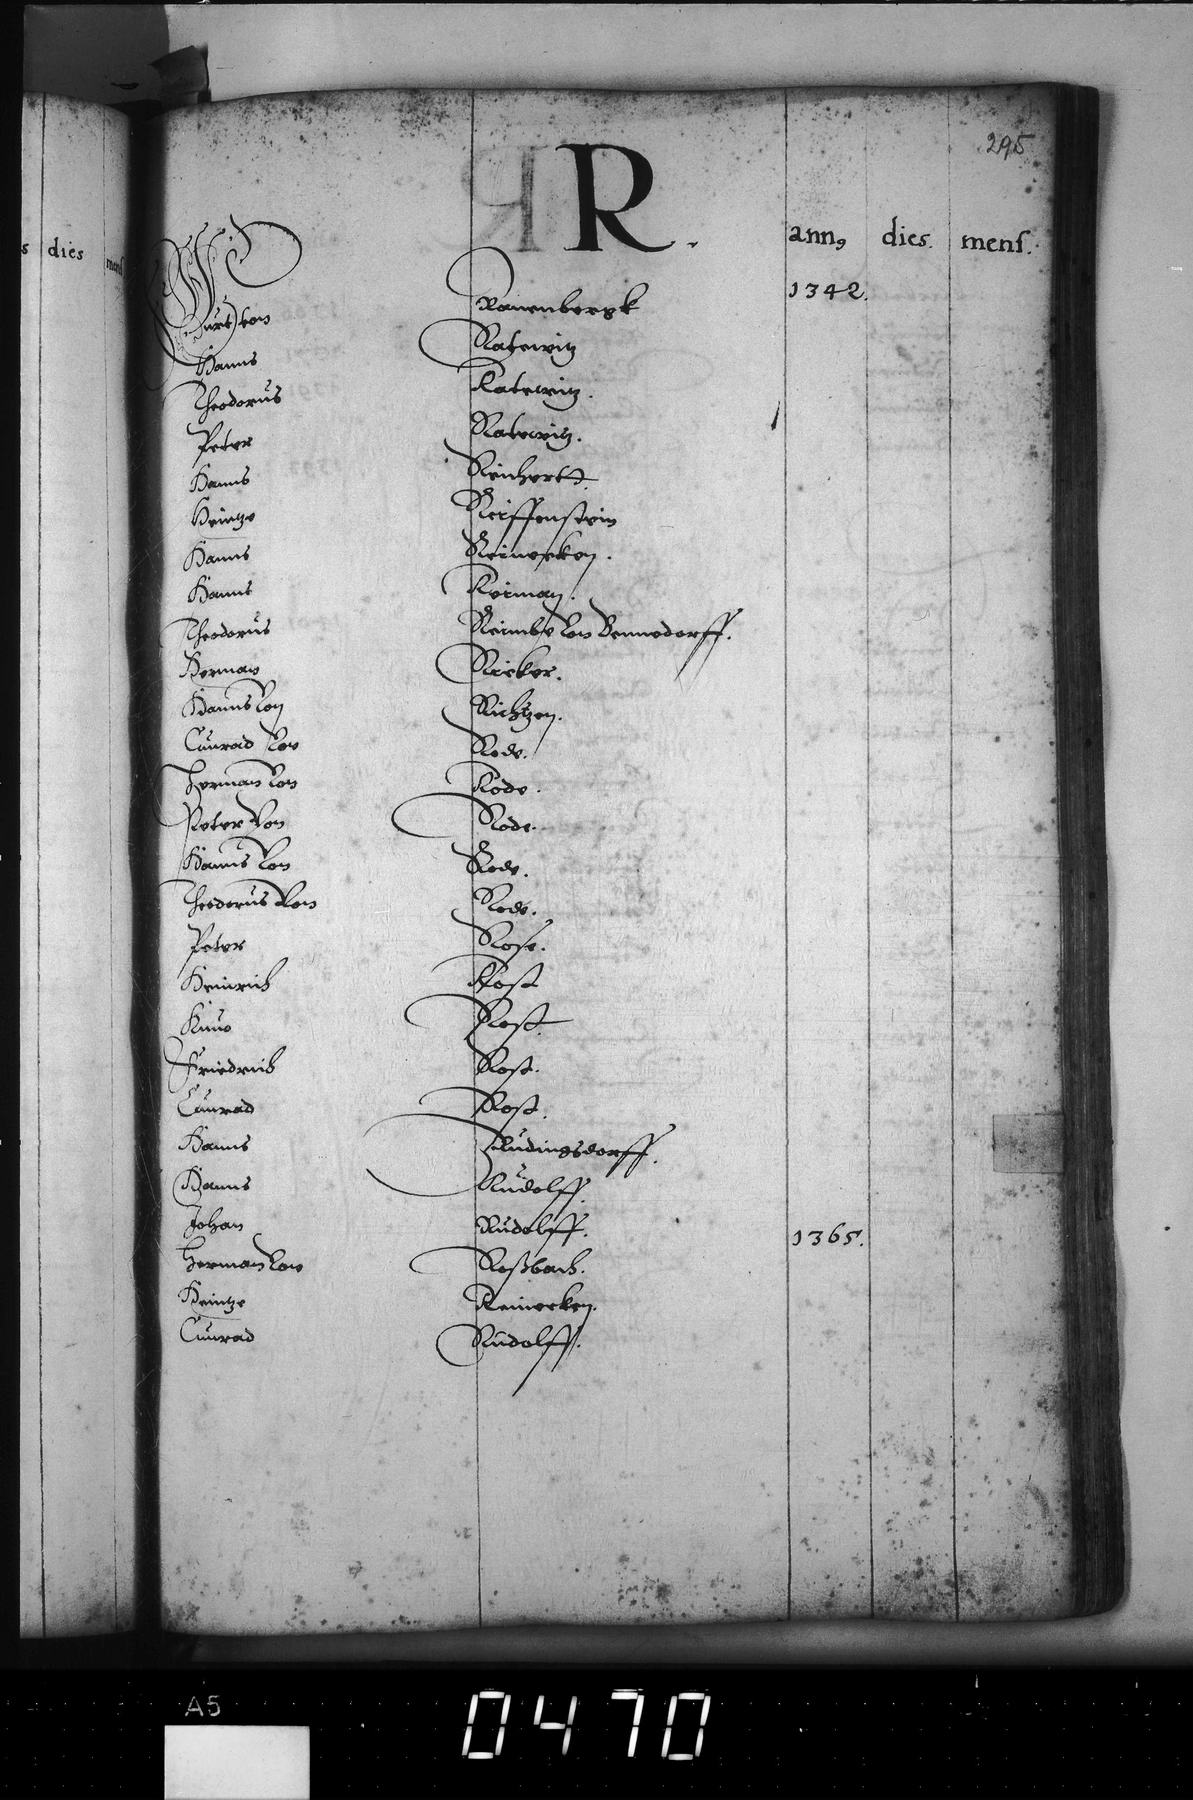 295
R.
s dies mens
ann9 dies. mens.
Curt von Rauenbergk 1342.
Hanns Ratewitz
Theodorus Ratewitz.
Peter Ratewitz.
Hanns Reinhertt.
Heintze Reiffenstein
Hanns Reinecken.
Hanns Reiman.
Theodorus Reimbe von Bennedorff.
Herman Ricker.
Hanns von
Cunrad von Rode.
Herman von Rode.
Peter von Rode.
Hanns von Rode.
Theodorus von Rode.
Peter Rose.
Heinrich Rost
Kuno Rost.
Friedrich Rost.
Cunrad Rost.
Hanns Rudingsdorff.
Hanns Rudolff.
Johan Rudolff. 1365.
Herman von Roßbach.
Heintze Reinecken.
Cunrad Rudolff.
A5
0470